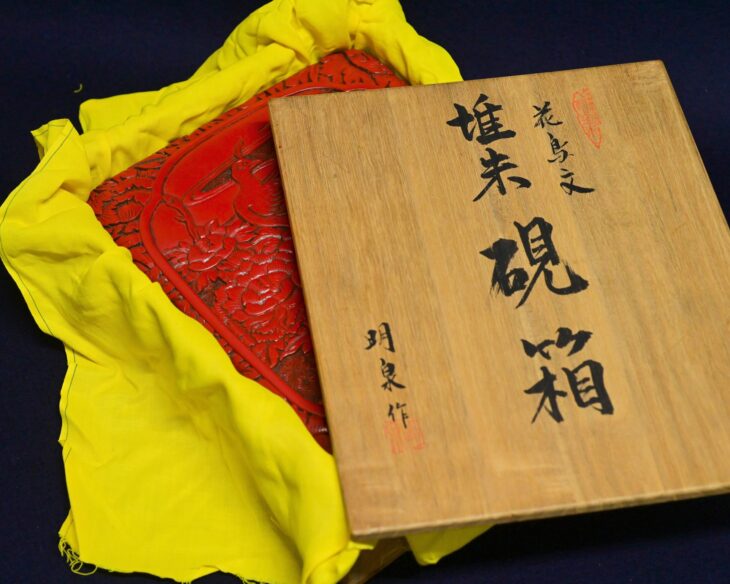 花鳥文
堆朱
硯箱
明泉作